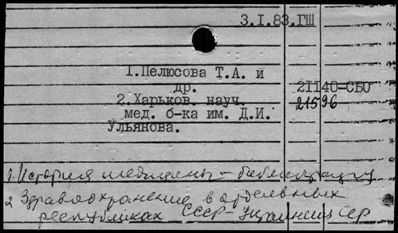 3.I.83.ГШ
1.Пелюсова Т.А. и
др.
21140=СБО
2.Харьков. науч.
21596
мед. б-ка им. Д.И.
Ульянова.
1. История медицины - библиография
2 Здравоохранение в отдельных
республиках СССР - Украинская сер